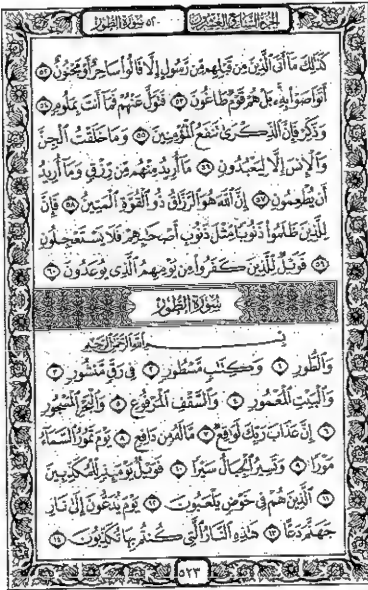 الجزء السابع والعشرون ٥٢- سورة الطور
كَذَٰلِكَ مَآ أَتَى ٱلَّذِينَ مِن قَبْلِهِم مِّن رَّسُولٍ إِلَّا قَالُوا۟ سَاحِرٌ أَوْ مَجْنُونٌ ٥٢
أَتَوَاصَوْا۟ بِهِۦ بَلْ هُمْ قَوْمٌ طَاغُونَ ٥٣ فَتَوَلَّ عَنْهُمْ فَمَآ أَنتَ بِمَلُومٍ ٥٤
وَذَكِّرْ فَإِنَّ ٱلذِّكْرَىٰ تَنفَعُ ٱلْمُؤْمِنِينَ ٥٥ وَمَا خَلَقْتُ ٱلْجِنَّ
وَٱلْإِنسَ إِلَّا لِيَعْبُدُونِ ٥٦ مَآ أُرِيدُ مِنْهُم مِّن رِّزْقٍ وَمَآ أُرِيدُ
أَن يُطْعِمُونِ ٥٧ إِنَّ ٱللَّهَ هُوَ ٱلرَّزَّاقُ ذُو ٱلْقُوَّةِ ٱلْمَتِينُ ٥٨ فَإِنَّ
لِلَّذِينَ ظَلَمُوا۟ ذَنُوبًا مِّثْلَ ذَنُوبِ أَصْحَٰبِهِمْ فَلَا يَسْتَعْجِلُونِ
٥٩ فَوَيْلٌ لِّلَّذِينَ كَفَرُوا۟ مِن يَوْمِهِمُ ٱلَّذِى يُوعَدُونَ ٦٠
سورة الطور
بِسْمِ ٱللَّهِ ٱلرَّحْمَٰنِ ٱلرَّحِيمِ
وَٱلطُّورِ ١ وَكِتَٰبٍ مَّسْطُورٍ ٢ فِى رَقٍّ مَّنشُورٍ ٣
وَٱلْبَيْتِ ٱلْمَعْمُورِ ٤ وَٱلسَّقْفِ ٱلْمَرْفُوعِ ٥ وَٱلْبَحْرِ ٱلْمَسْجُورِ
٦ إِنَّ عَذَابَ رَبِّكَ لَوَٰقِعٌ ٧ مَّا لَهُۥ مِن دَافِعٍ ٨ يَوْمَ تَمُورُ ٱلسَّمَآءُ
مَوْرًا ٩ وَتَسِيرُ ٱلْجِبَالُ سَيْرًا ١٠ فَوَيْلٌ يَوْمَئِذٍ لِّلْمُكَذِّبِينَ
١١ ٱلَّذِينَ هُمْ فِى خَوْضٍ يَلْعَبُونَ ١٢ يَوْمَ يُدَعُّونَ إِلَىٰ نَارِ
جَهَنَّمَ دَعًّا ١٣ هَٰذِهِ ٱلنَّارُ ٱلَّتِى كُنتُم بِهَا تُكَذِّبُونَ ١٤
٥٢٣